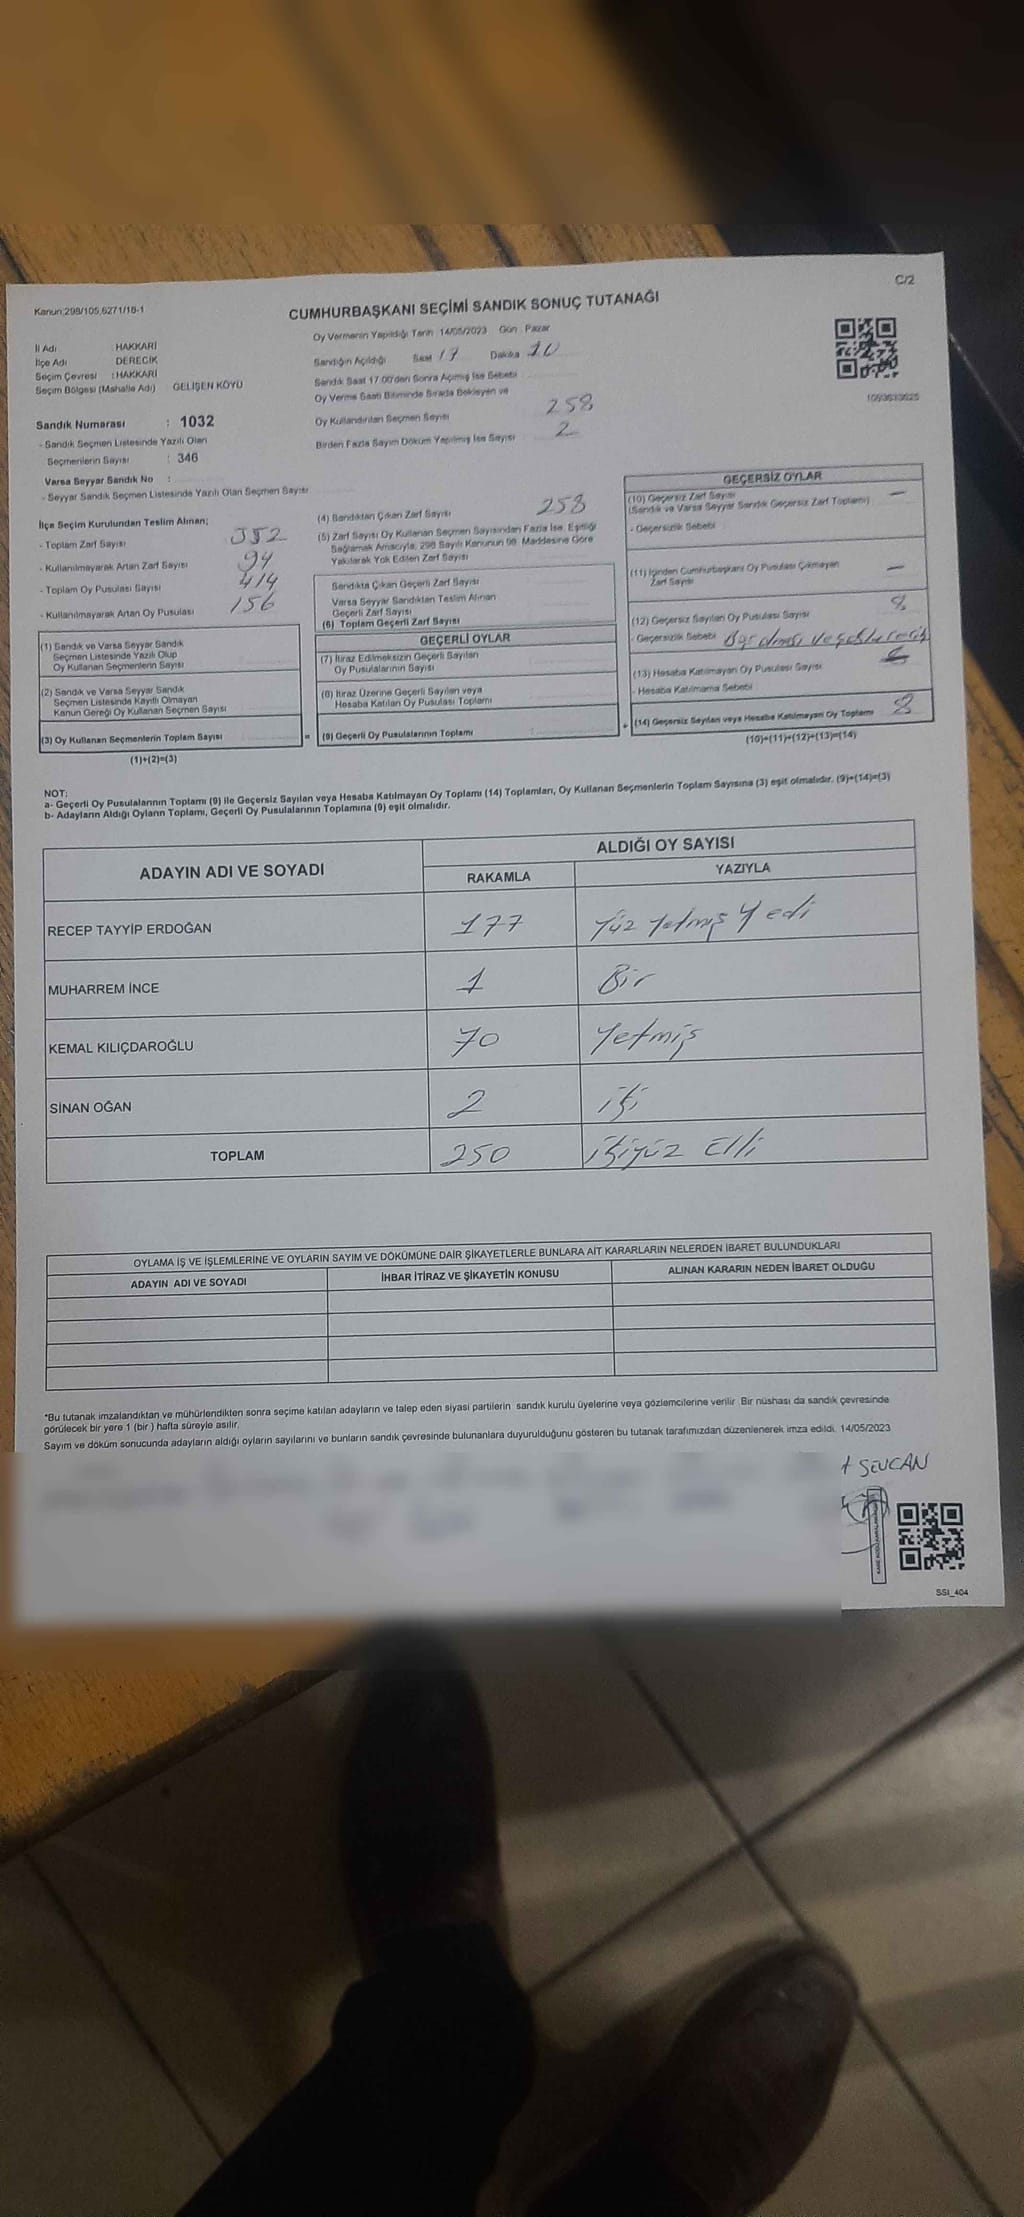 C/2
Kanun:298/105,6271/18-1
CUMHURBAŞKANI SEÇİMİ SANDIK SONUÇ TUTANAĞI
Oy Vermenin Yapıldığı Tarih : 14/05/2023 Gün : Pazar
İl Adı : HAKKARİ
İlçe Adı : DERECİK
Seçim Çevresi : HAKKARİ
Seçim Bölgesi (Mahalle Adı) GELİŞEN KÖYÜ
Sandığın Açıldığı Saat 17 Dakika 10
Sandık Saat 17:00'den Sonra Açılmış İse Sebebi
Oy Verme Saati Bitiminde Sırada Bekleyen ve
Oy Kullandırılan Seçmen Sayısı 258
Birden Fazla Sayım Döküm Yapılmış İse Sayısı 2
Sandık Numarası : 1032
- Sandık Seçmen Listesinde Yazılı Olan
Seçmenlerin Sayısı : 346
Varsa Seyyar Sandık No :
- Seyyar Sandık Seçmen Listesinde Yazılı Olan Seçmen Sayısı
İlçe Seçim Kurulundan Teslim Alınan;
- Toplam Zarf Sayısı 352
- Kullanılmayarak Artan Zarf Sayısı 94
- Toplam Oy Pusulası Sayısı 414
- Kullanılmayarak Artan Oy Pusulası 156
(1) Sandık ve Varsa Seyyar Sandık
Seçmen Listesinde Yazılı Olup
Oy Kullanan Seçmenlerin Sayısı
(2) Sandık ve Varsa Seyyar Sandık
Seçmen Listesinde Kayıtlı Olmayan
Kanun Gereği Oy Kullanan Seçmen Sayısı
(3) Oy Kullanan Seçmenlerin Toplam Sayısı
(1)+(2)=(3)
(4) Sandıktan Çıkan Zarf Sayısı 258
(5) Zarf Sayısı Oy Kullanan Seçmen Sayısından Fazla İse, Eşitliği
Sağlamak Amacıyla, 298 Sayılı Kanunun 98. Maddesine Göre
Yakılarak Yok Edilen Zarf Sayısı
Sandıkta Çıkan Geçerli Zarf Sayısı
Varsa Seyyar Sandıktan Teslim Alınan
Geçerli Zarf Sayısı
(6) Toplam Geçerli Zarf Sayısı
GEÇERLİ OYLAR
(7) İtiraz Edilmeksizin Geçerli Sayılan
Oy Pusulalarının Sayısı
(8) İtiraz Üzerine Geçerli Sayılan veya
Hesaba Katılan Oy Pusulası Toplamı
= (9) Geçerli Oy Pusulalarının Toplamı
GEÇERSİZ OYLAR
(10) Geçersiz Zarf Sayısı –
(Sandık ve Varsa Seyyar Sandık Geçersiz Zarf Toplamı)
- Geçersizlik Sebebi
(11) İçinden Cumhurbaşkanı Oy Pusulası Çıkmayan –
Zarf Sayısı
(12) Geçersiz Sayılan Oy Pusulası Sayısı 8
- Geçersizlik Sebebi
(13) Hesaba Katılmayan Oy Pusulası Sayısı
- Hesaba Katılmama Sebebi
+ (14) Geçersiz Sayılan veya Hesaba Katılmayan Oy Toplamı 8
(10)+(11)+(12)+(13)=(14)
NOT:
a- Geçerli Oy Pusulalarının Toplamı (9) ile Geçersiz Sayılan veya Hesaba Katılmayan Oy Toplamı (14) Toplamları, Oy Kullanan Seçmenlerin Toplam Sayısına (3) eşit olmalıdır. (9)+(14)=(3)
b- Adayların Aldığı Oyların Toplamı, Geçerli Oy Pusulalarının Toplamına (9) eşit olmalıdır.
ADAYIN ADI VE SOYADI ALDIĞI OY SAYISI
RAKAMLA YAZIYLA
RECEP TAYYİP ERDOĞAN 177 Yüz Yetmiş Yedi
MUHARREM İNCE 1 Bir
KEMAL KILIÇDAROĞLU 70 Yetmiş
SİNAN OĞAN 2 iki
TOPLAM 250 ikiyüz Elli
OYLAMA İŞ VE İŞLEMLERİNE VE OYLARIN SAYIM VE DÖKÜMÜNE DAİR ŞİKAYETLERLE BUNLARA AİT KARARLARIN NELERDEN İBARET BULUNDUKLARI
ADAYIN ADI VE SOYADI İHBAR İTİRAZ VE ŞİKAYETİN KONUSU ALINAN KARARIN NEDEN İBARET OLDUĞU
*Bu tutanak imzalandıktan ve mühürlendikten sonra seçime katılan adayların ve talep eden siyasi partilerin sandık kurulu üyelerine veya gözlemcilerine verilir. Bir nüshası da sandık çevresinde
görülecek bir yere 1 (bir ) hafta süreyle asılır.
Sayım ve döküm sonucunda adayların aldığı oyların sayılarını ve bunların sandık çevresinde bulunanlara duyurulduğunu gösteren bu tutanak tarafımızdan düzenlenerek imza edildi. 14/05/2023
SEVCAN
SSI_404